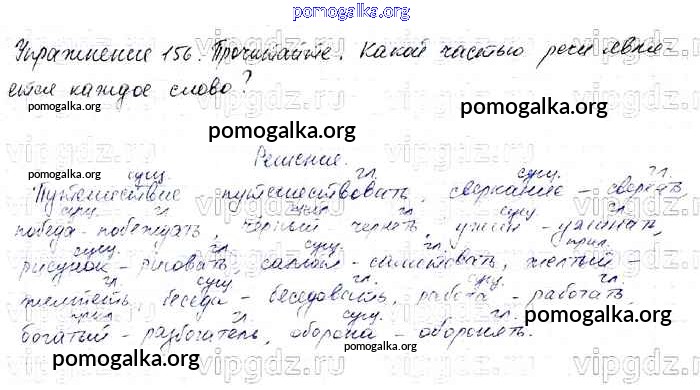 pomogalka.org
Упражнение 156. Прочитайте. Какой частью речи явля-
ется каждое слово?
pomogalka.org pomogalka.org
pomogalka.org
Решение.
pomogalka.org
сущ. гл. сущ. гл.
Путешествие - путешествовать, сверкание - сверкать
сущ. гл. гл. сущ. гл.
победа - побеждать, чёрный чернеть, ужин - ужинать,
сущ. гл. сущ. гл. прил.
рисунок - рисовать салют - салютовать, желтый -
гл. гл. сущ. гл.
желтеть, беседа - беседовать, работа - работать,
прил. сущ. гл.
богатый - разбогатеть, оборона - оборонять.
pomogalka.org pomogalka.org
pomogalka.org
vipgdz.ru vipgdz.ru vipgdz.ru